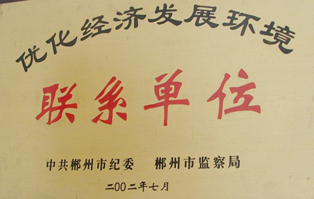 优化经济发展环境
联系单位
中共郴州市纪委 郴州市监察局
二00二年七月